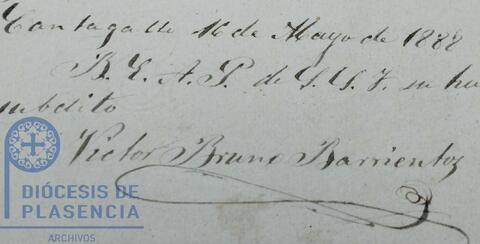 Cantagallo 16 de Mayo de 1888
B. E. A. P. de S. S. Y. su hu
subdito
Victor Bruno Barrientos
DIÓCESIS DE
PLASENCIA
ARCHIVOS